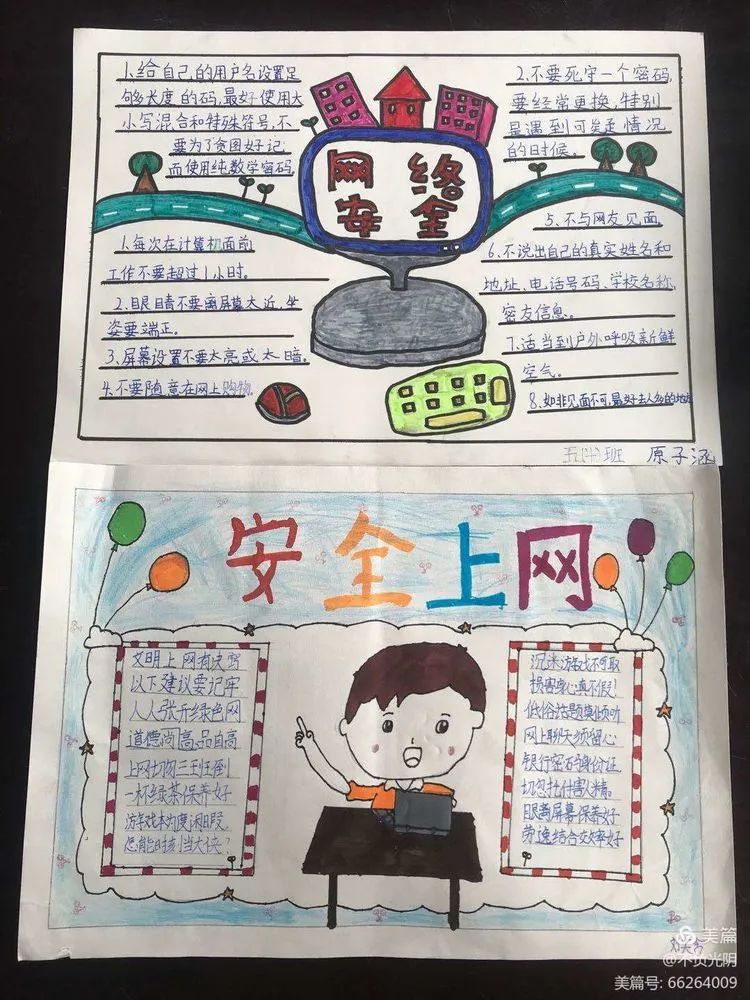 1.给自己的用户名设置足
够长度的码,最好使用大
小写混合和特殊符号,不
要为了贪图好记
而使用纯数学密码
2.不要死守一个密码,
要经常更换,特别
是遇到可疑情况
的时候。
网络
安全
1.每次在计算机面前
工作不要超过1小时。
2.眼睛不要离屏幕太近,坐
姿要端正。
3.屏幕设置不要太亮或太暗。
4.不要随意在网上购物
5.不与网友见面
6.不说出自己的真实姓名和
地址、电话号码、学校名称、
密友信息。
7.适当到户外呼吸新鲜
空气。
8.如非见面不可,最好去人多的地
五(4)班 原子涵
安全上网
文明上网有决窍
以下建议要记牢
人人张开绿色网
道德尚高品自高
上网切勿三五狂倒
一杯绿茶保养好
游戏本为度闲暇
怎能日夜当大侠?
沉迷游戏不可取
损害身心真不假!
低俗话题莫倾听
网上聊天须留心
银行密码身份证
切忽
眼离屏幕保养好
劳逸结合效率好
美篇
@不负光阴
美篇号: 66264009